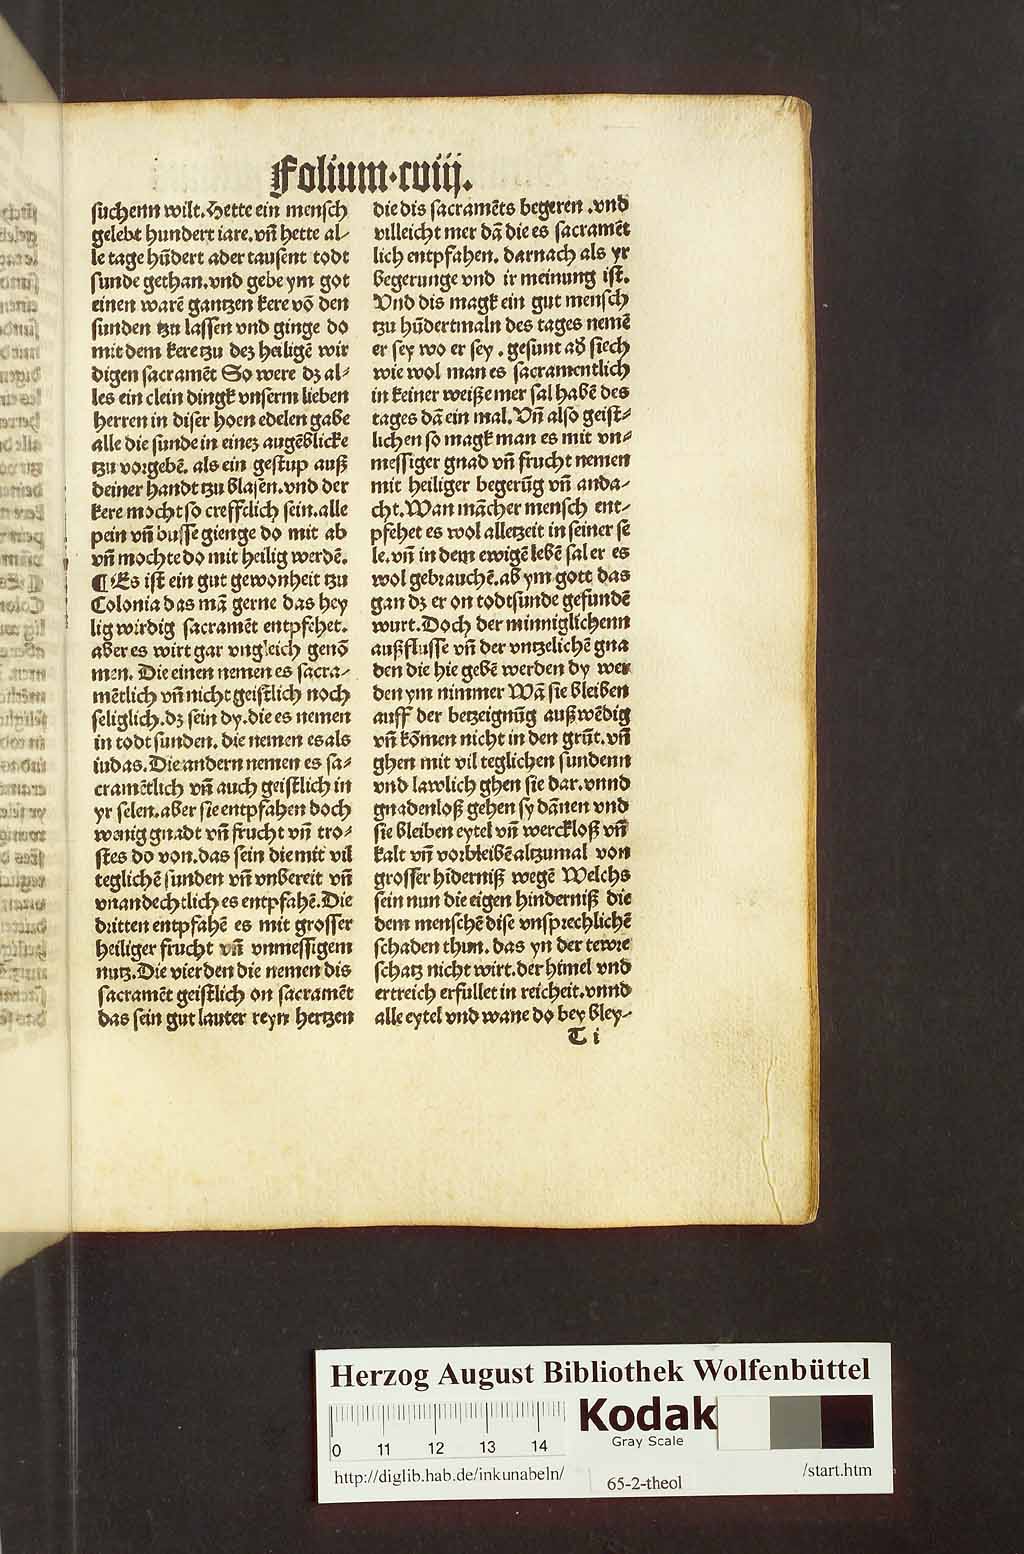 Folium·cviij.
suchenn wilt. Hette ein mensch
gelebt hundert iare. vn̄ hette al-
le tage hūdert ader tausent todt
sunde gethan. vnd gebe ym got
einen warē gantzen kere vō den
sunden tzu lassen vnd ginge do
mit dem kere tzu dez heiligē wir
digen sacramēt So were dz al-
les ein clein dingk vnserm lieben
herren in diser hoen edelen gabe
alle die sunde in einez augēblicke
tzu vorgebē. als ein gestup auß
deiner handt tzu blasen. vnd der
kere mocht so creffclich sein. alle
pein vn̄ busse gienge do mit ab
vn̄ mochte do mit heilig werdē.
¶ Es ist ein gut gewonheit tzu
Colonia das mā gerne das hey
lig wirdig sacramēt entpfehet.
aber es wirt gar vngleich genō
men. Die einen nemen es sacra-
mētlich vn̄ nicht geistlich noch
seliglich. dz sein dy. die es nemen
in todt sunden. die nemen es als
iudas. Die andern nemen es sa-
cramētlich vn̄ auch geistlich in
yr selen. aber sie entpfahen doch
wenig gnadt vn̄ frucht vn̄ tro-
stes do von. das sein die mit vil
teglichē sunden vn̄ vnbereit vn̄
vnandechtlich es entpfahē. Die
dritten entpfahē es mit grosser
heiliger frucht vn̄ vnmessigem
nutz. Die vierden die nemen dis
sacramēt geistlich on sacramēt
das sein gut lauter reyn hertzen
die dis sacramēts begeren .vnd
villeicht mer dā die es sacramēt
lich entpfahen. darnach als yr
begerunge vnd ir meinung ist.
Vnd dis magk ein gut mensch
tzu hūdertmaln des tages nemē
er sey wo er sey . gesunt ab siech
wie wol man es sacramentlich
in keiner weiße mer sal habē des
tages dā ein mal. Vn̄ also geist-
lichen so magk man es mit vn-
messiger gnad vn̄ frucht nemen
mit heiliger begerūg vn̄ anda-
cht. Wan mācher mensch ent-
pfehet es wol alletzeit in seiner se
le. vn̄ in dem ewigē lebē sal er es
wol gebrauchē. ab ym gott das
gan dz er on todtsunde gefundē
wurt. Doch der minniglichenn
außflusse vn̄ der vntzelichē gna
den die hie gebē werden dy wer
den ym nimmer Wā sie bleiben
auff der betzeignūg außwēdig
vn̄ kōmen nicht in den grūt. vn̄
ghen mit vil teglichen sundenn
vnd lawlich ghen sie dar. vnnd
gnadenloß gehen sy dānen vnd
sie bleiben eytel vn̄ werckloß vn̄
kalt vn̄ vorbleibē altzumal von
grosser hīderniß wegē Welchs
sein nun die eigen hinderniß die
dem menschē dise vnsprechlichē
schaden thun. das yn der tewre
schatz nicht wirt. der himel vnd
ertreich erfullet in reicheit. vnnd
alle eytel vnd wane do bey bley-
T i
Herzog August Bibliothek Wolfenbüttel
Kodak
Gray Scale
0 11 12 13 14
http://diglib.hab.de/inkunabeln/
65-2-theol
/start.htm